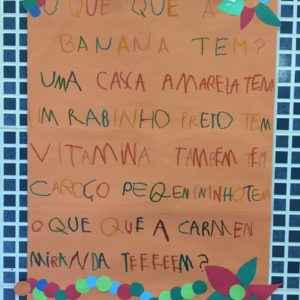 O QUE QUE A
BANANA TEM?
UMA CASCA AMARELA TEM
UM RABINHO PRETO TEM
VITAMINA TAMBÉM TEM
CAROÇO PEQUENININHO TEM
O QUE QUE A CARMEN
MIRANDA TEEEEEM?